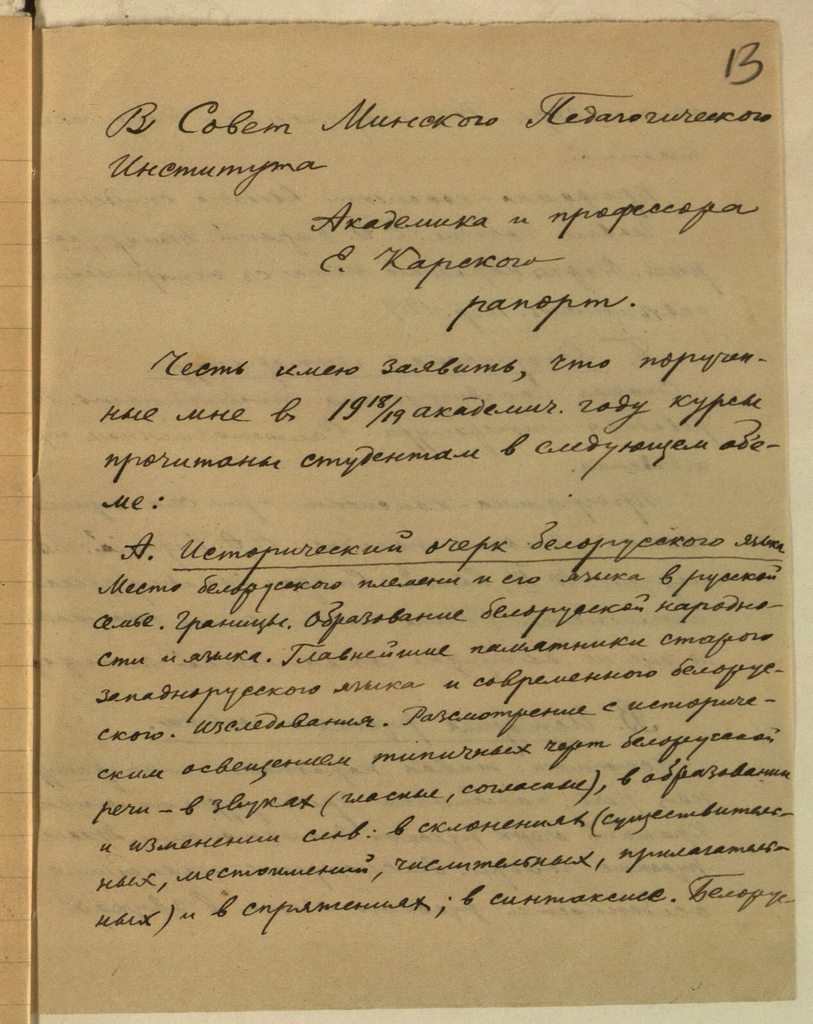 13
В Совет Минского Педагогического
Института
Академика и профессора
Е. Карского
рапорт.
Честь имею заявить, что поручен-
ные мне в 1918/19 академич. году курсы
прочитаны студентам в следующем объе-
ме:
А. Исторический очерк белорусского языка
Место белорусского племени и его языка в русской
семье. Границы. Образование белорусской народно-
сти и языка. Главнейшие памятники старого
западнорусского языка и современного белорус-
ского. Исследования. Рассмотрение с историче-
ским освещением типичных черт белорусской
речи – в звуках (гласные, согласные), в образовании
и изменении слов: в склонениях (существитель-
ных, местоимений, числительных, прилагатель-
ных) и в спряжениях; в синтаксисе. Белорус-